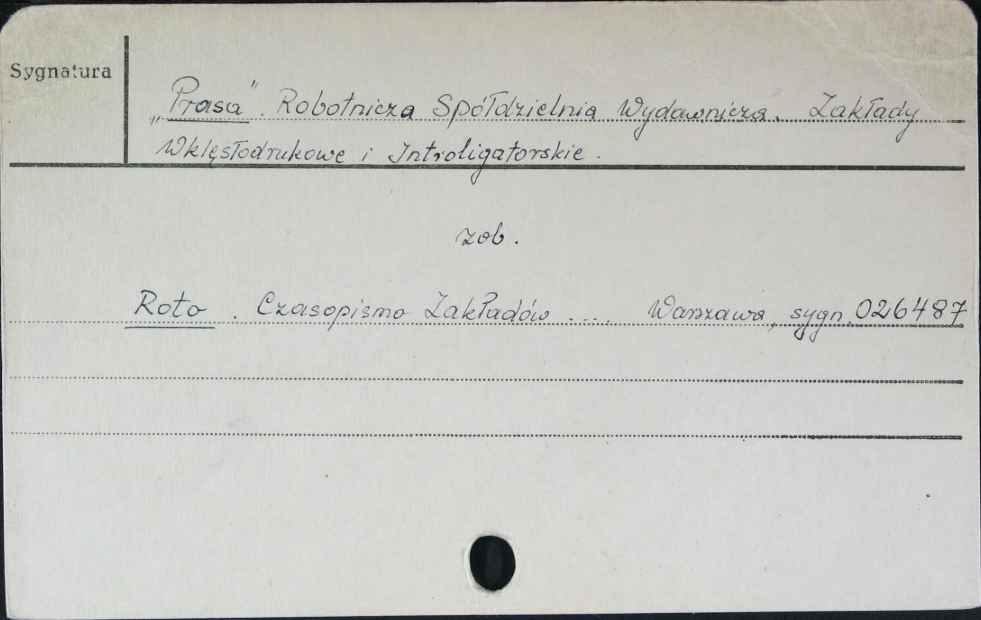 Sygnatura
„Prasa”. Robotnicza Spółdzielnia Wydawnicza. Zakłady
Wklęsłodrukowe i Introligatorskie.
zob.
Roto. Czasopismo Zakładów .... Warszawa, sygn. 026487